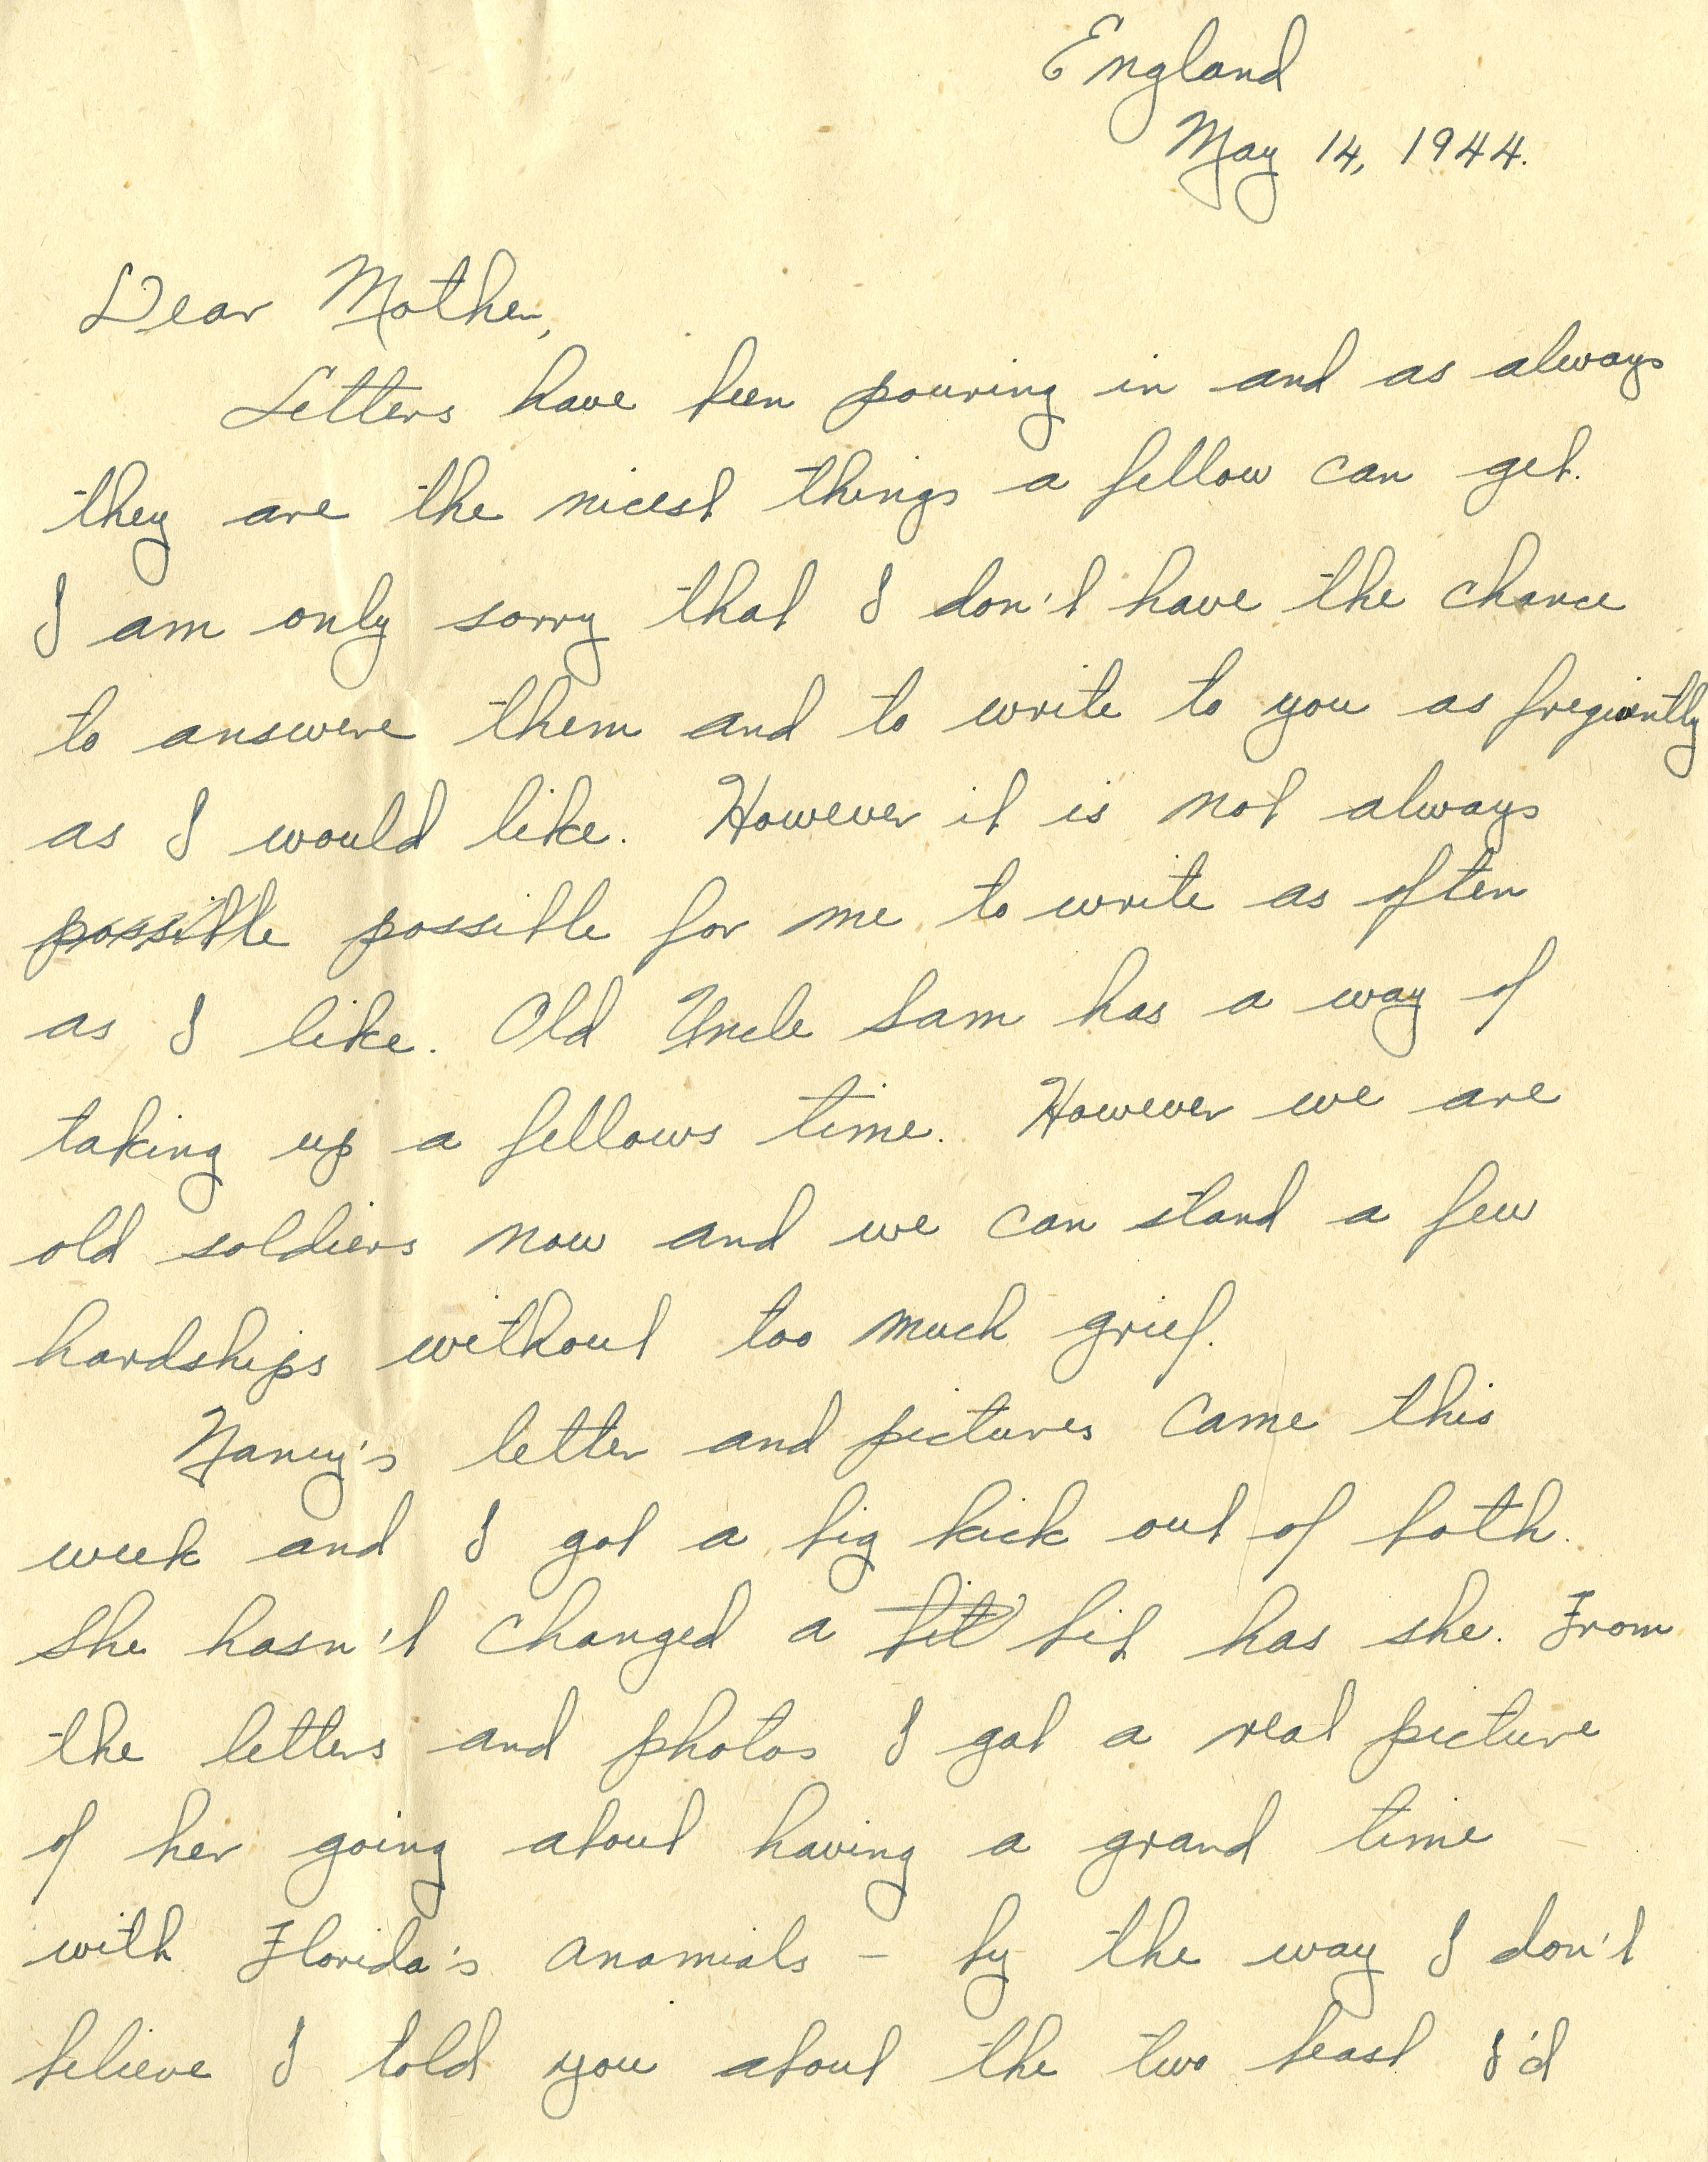 England
May 14, 1944.
Dear Mother,
Letters have been pouring in and as always
they are the nicest things a fellow can get.
I am only sorry that I don't have the chance
to answere them and to write to you as freqiently
as I would like. However it is not always
possible possible for me to write as often
as I like. Old Uncle Sam has a way of
taking up a fellows time. However we are
old soldiers now and we can stand a few
hardships without too much grief.
Nancy's letter and pictures came this
week and I got a big kick out of both.
She hasn't changed a bit bit has she. From
the letters and photos I got a real picture
of her going about having a grand time
with Florida's anamials - by the way I don't
believe I told you about the two beast I'd